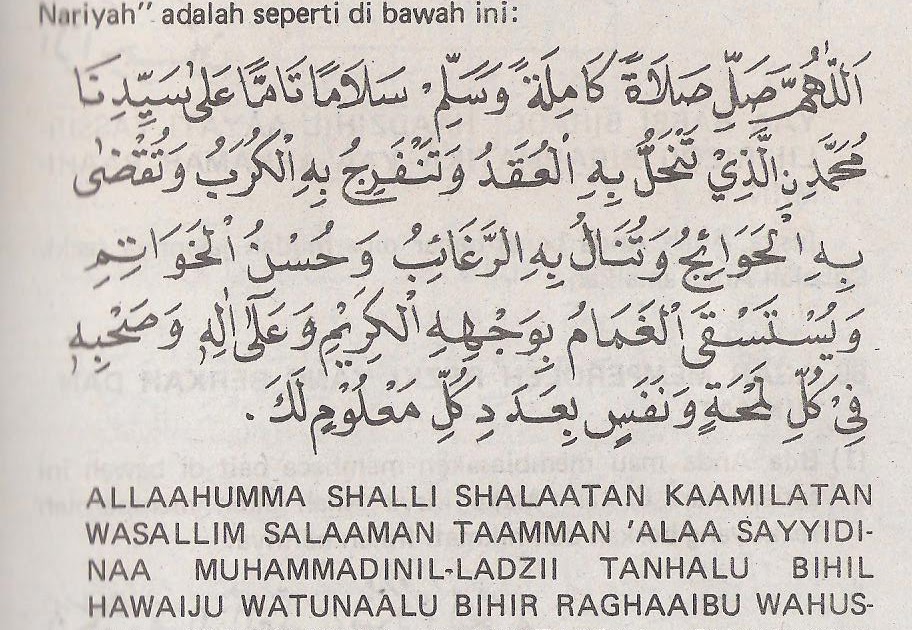 Nariyah" adalah seperti di bawah ini:
اَللّٰهُمَّ صَلِّ صَلَاةً كَامِلَةً وَسَلِّمْ سَلَامًا تَامًّا عَلٰى سَيِّدِنَا
مُحَمَّدِنِ الَّذِيْ تَنْحَلُّ بِهِ الْعُقَدُ وَتَنْفَرِجُ بِهِ الْكُرَبُ وَتُقْضٰى
بِهِ الْحَوَائِجُ وَتُنَالُ بِهِ الرَّغَائِبُ وَحُسْنُ الْخَوَاتِمِ
وَيُسْتَسْقَى الْغَمَامُ بِوَجْهِهِ الْكَرِيْمِ وَعَلٰٓى اٰلِهٖ وَصَحْبِهٖ
فِيْ كُلِّ لَمْحَةٍ وَنَفَسٍ بِعَدَدِ كُلِّ مَعْلُوْمٍ لَكَ.
ALLAAHUMMA SHALLI SHALAATAN KAAMILATAN
WASALLIM SALAAMAN TAAMMAN 'ALAA SAYYIDI-
NAA MUHAMMADINIL-LADZII TANHALU BIHIL
HAWAIJU WATUNAALU BIHIR RAGHAAIBU WAHUS-